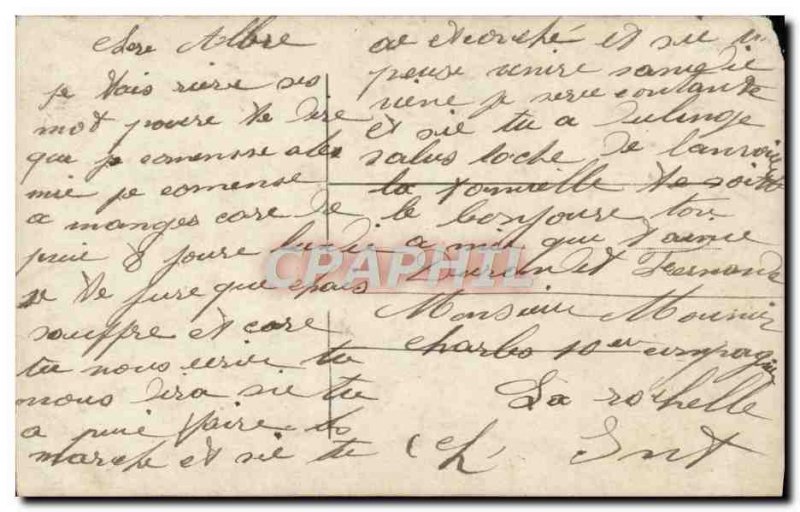 Chere Albre
je vais rière ses
mot poure te dire
que je comensse ales
mie je comense
a manges care de
puie 8 joure
je te jure que
souffre et care
tu nous ecrir tu
nous dira sie tu
a puie faire les
marche et sie tu
ae etorché et sie
peuse venire samedie
viene je serie contante
et sie tu a du linge
salus loche de
la famielle te soite
le bonjoure ton
a mie que t'aime
Durand Fernand
Monsieur Mounier
Charles 10 em compagnie
La rochelle
Ch Inf
CPAPHIL